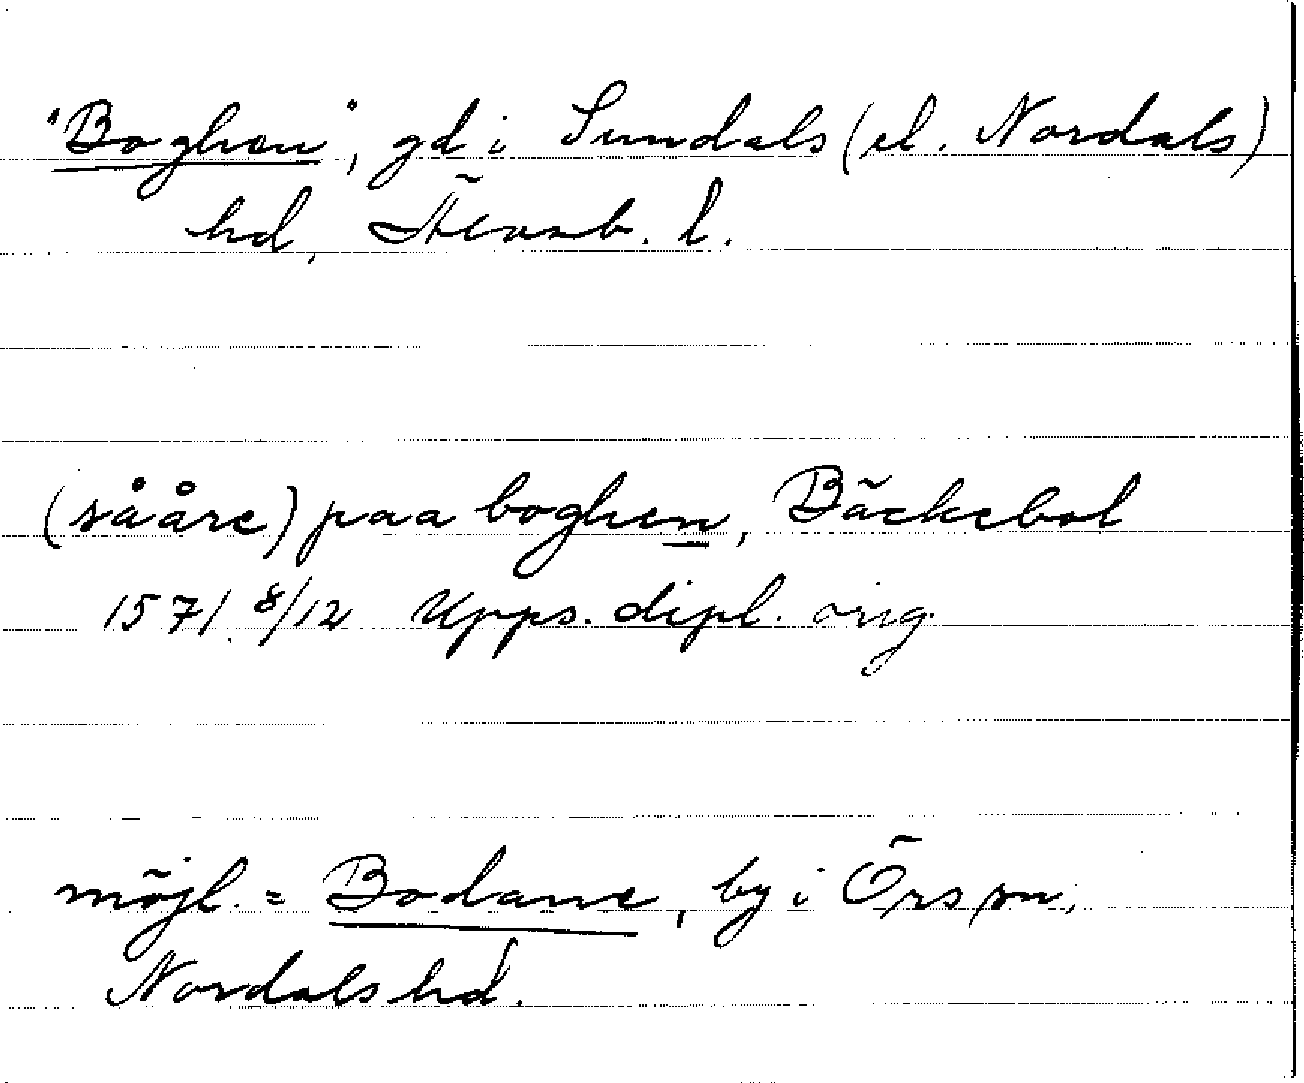 "Boghen", gd i Sundals (el. Nordals)
hd, Älvsb. l.
(sååre) paa boghen, Bäckebol
1571 8/12 Upps. dipl. orig.
möjl. = Bodane, by i Örs sn,
Nordals hd.